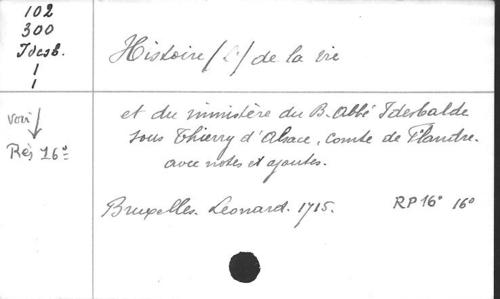 102
300
Idesb.
1
1
Histoire (L') de la vie
voir
Rés 16°
et du ministère du B. Abbé Idesbalde
sous Thierry d'Alsace, Comte de Flandre.
avec notes et ajoutes.
Bruxelles. Leonard. 1715. RP 16° 16°